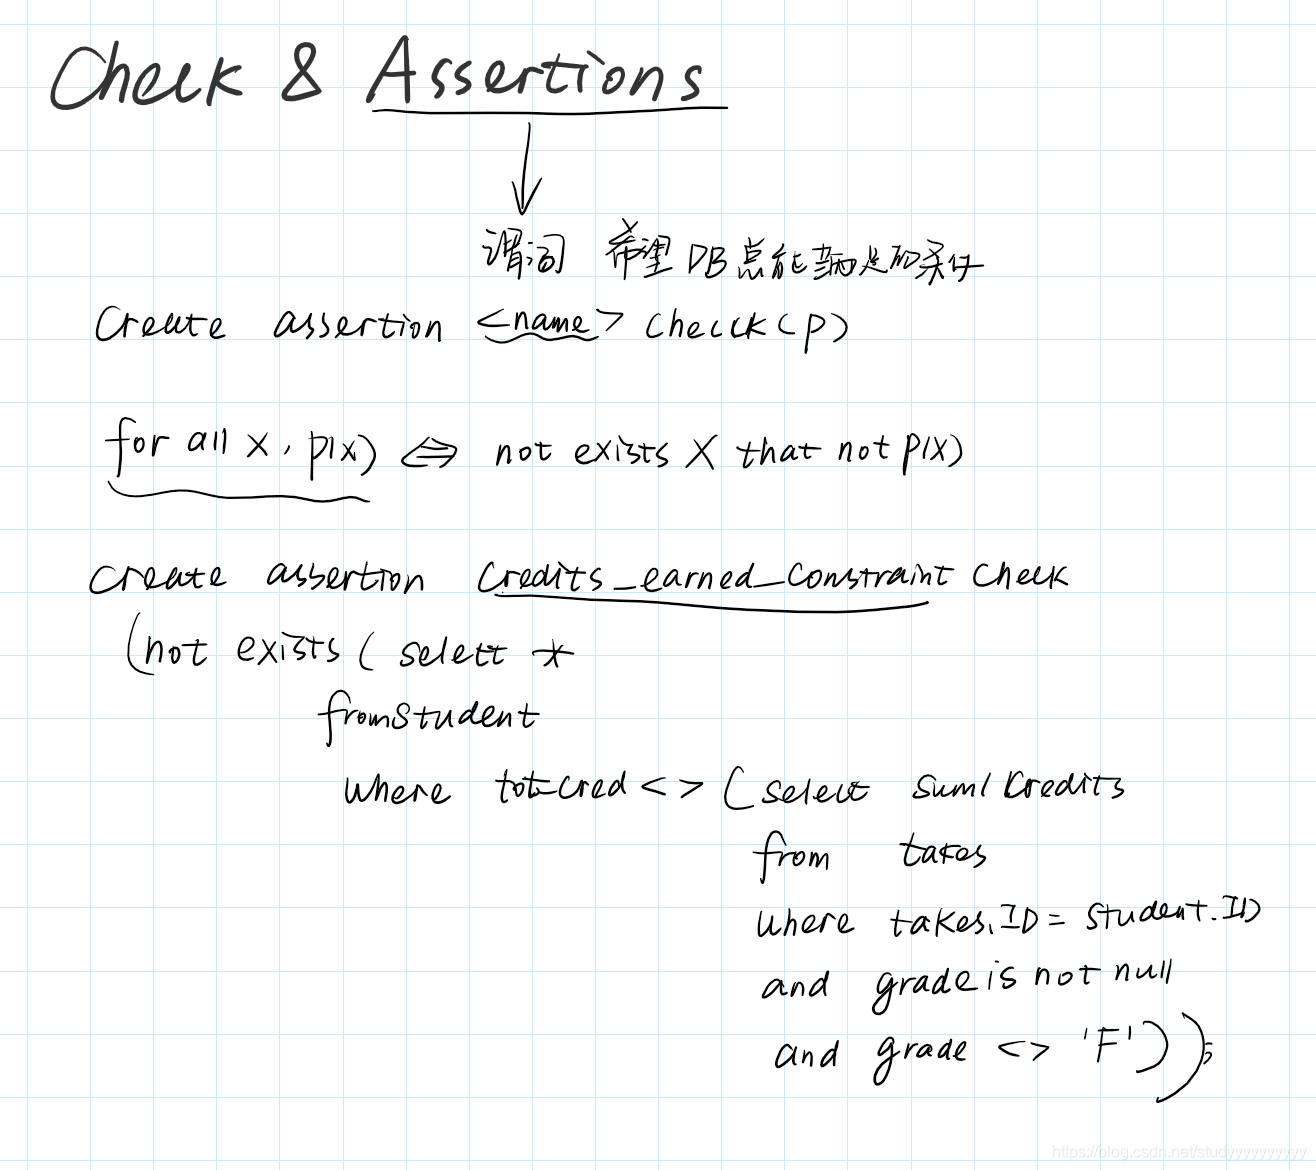 Check & Assertions
谓词 希望DB总能满足的条件
Create assertion <name> check(p)
for all X, p(x) ⇔ not exists X that not p(x)
Create assertion Credits_earned_constraint check
(not exists ( select *
from student
where tot_cred <> (select sum(credits
from takes
where takes.ID = student.ID
and grade is not null
and grade <> 'F'));
https://blog.csdn.net/studyyyyyyyyyy